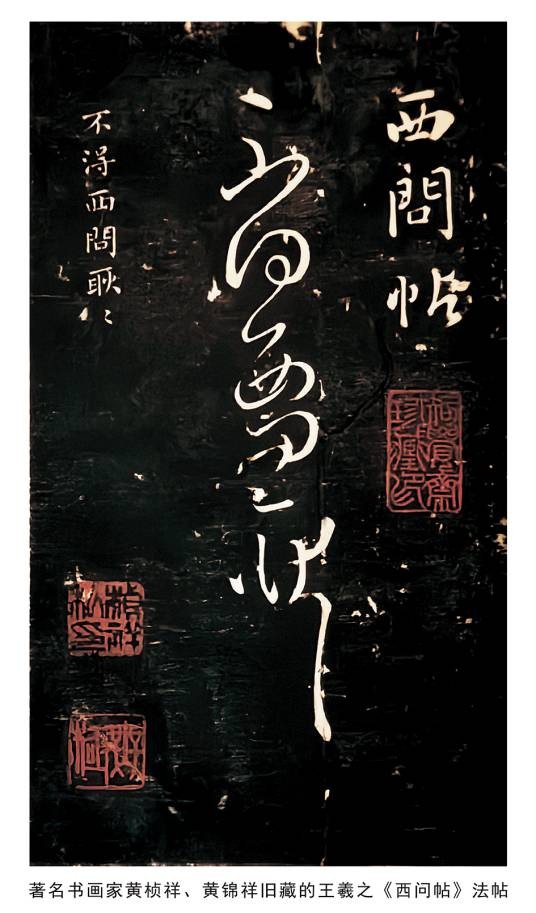 西問帖
不得西問耿
不得西問耿〻
著名书画家黄桢祥、黄锦祥旧藏的王羲之《西问帖》法帖